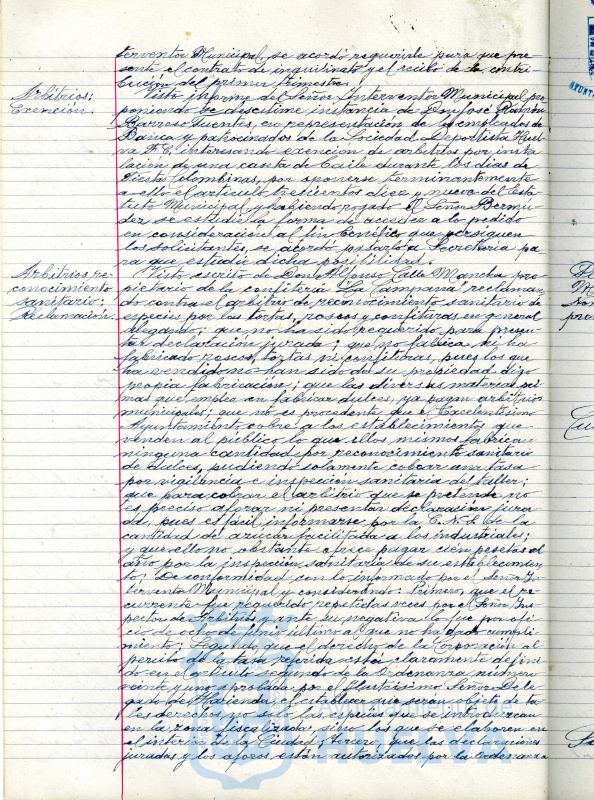 terventor Municipal, se acordó requerirle para que pre-
sente el contrato de inquilinato y el recibo de la contri-
bución del primer trimestre.
Arbitrios:
Exención.
Visto informe del Señor Interventor Municipal pro-
poniendo se desestime instancia de Don José Ramón
Barroso Fuentes, en representación de empleados de
Banca y patronados de la Sociedad Deportista Huel-
va F. C, interesando exención de arbitrios por insta-
lación de una caseta de baile durante los días de
Fiestas Colombinas, por oponerse terminantemente
a ello el artículo trescientos diez y nueve del Esta-
tuto Municipal y habiendo rogado el Señor Bermú-
dez se estudie la forma de acceder a lo pedido
en consideración al fin benéfico que persiguen
los solicitantes, se acordó pasarlo a Secretaría pa-
ra que estudie dicha posibilidad.
Arbitrios re-
conocimiento
sanitario:
Reclamación.
Visto escrito de Don Alfonso Calle Mancha pro-
pietario de la confitería "La Campana" reclaman-
do contra el arbitrio de reconocimiento sanitario de
especies por las tortas, roscos y confituras en general
alegando: que no ha sido requerido para presen-
tar declaración jurada; que no fabrica ni ha
fabricado roscos, tortas ni confituras, pues los que
ha vendido no han sido de su propiedad digo
propia fabricación; que las diversas materias pri-
mas que emplea en fabricar dulces, ya pagan arbitrios
municipales; que no es procedente que el Excelentísimo
Ayuntamiento cobre a los establecimientos que
venden al público lo que ellos mismos fabrican
ninguna cantidad por reconocimiento sanitario
de dulces, pudiendo solamente cobrar una tasa
por vigilancia e inspección sanitaria del taller;
que para cobrar el arbitrio que se pretende no
es preciso aforar ni presentar declaración jura-
da, pues es fácil informarse por la de la
cantidad de azúcar facilitada a los industriales;
y que ello no obstante ofrece pagar cien pesetas al
año por la inspección sanitaria de su establecimien-
to; De conformidad con lo informado por el Señor In-
terventor Municipal y considerando: Primero, que el re-
currente fue requerido repetidas veces por el Señor Ins-
pector de Arbitrios y ante su negativa lo fue por ofi-
cio de ocho de Junio último al que no ha dado cumpli-
miento; Segundo que el derecho de la Corporación al
percibo de la tasa referida está claramente defini-
do en el artículo segundo de la Ordenanza número
veinte y uno aprobada por el Ilustrísimo Señor Dele-
gado de Hacienda, al establecer que son objeto de ta-
les derechos, no solo las especies que se introduzcan
en la zona fiscalizada, sino los que se elaboren en
el interior de la Ciudad; Tercero, que las declaraciones
juradas y los aforos están autorizados por la Ordenanza